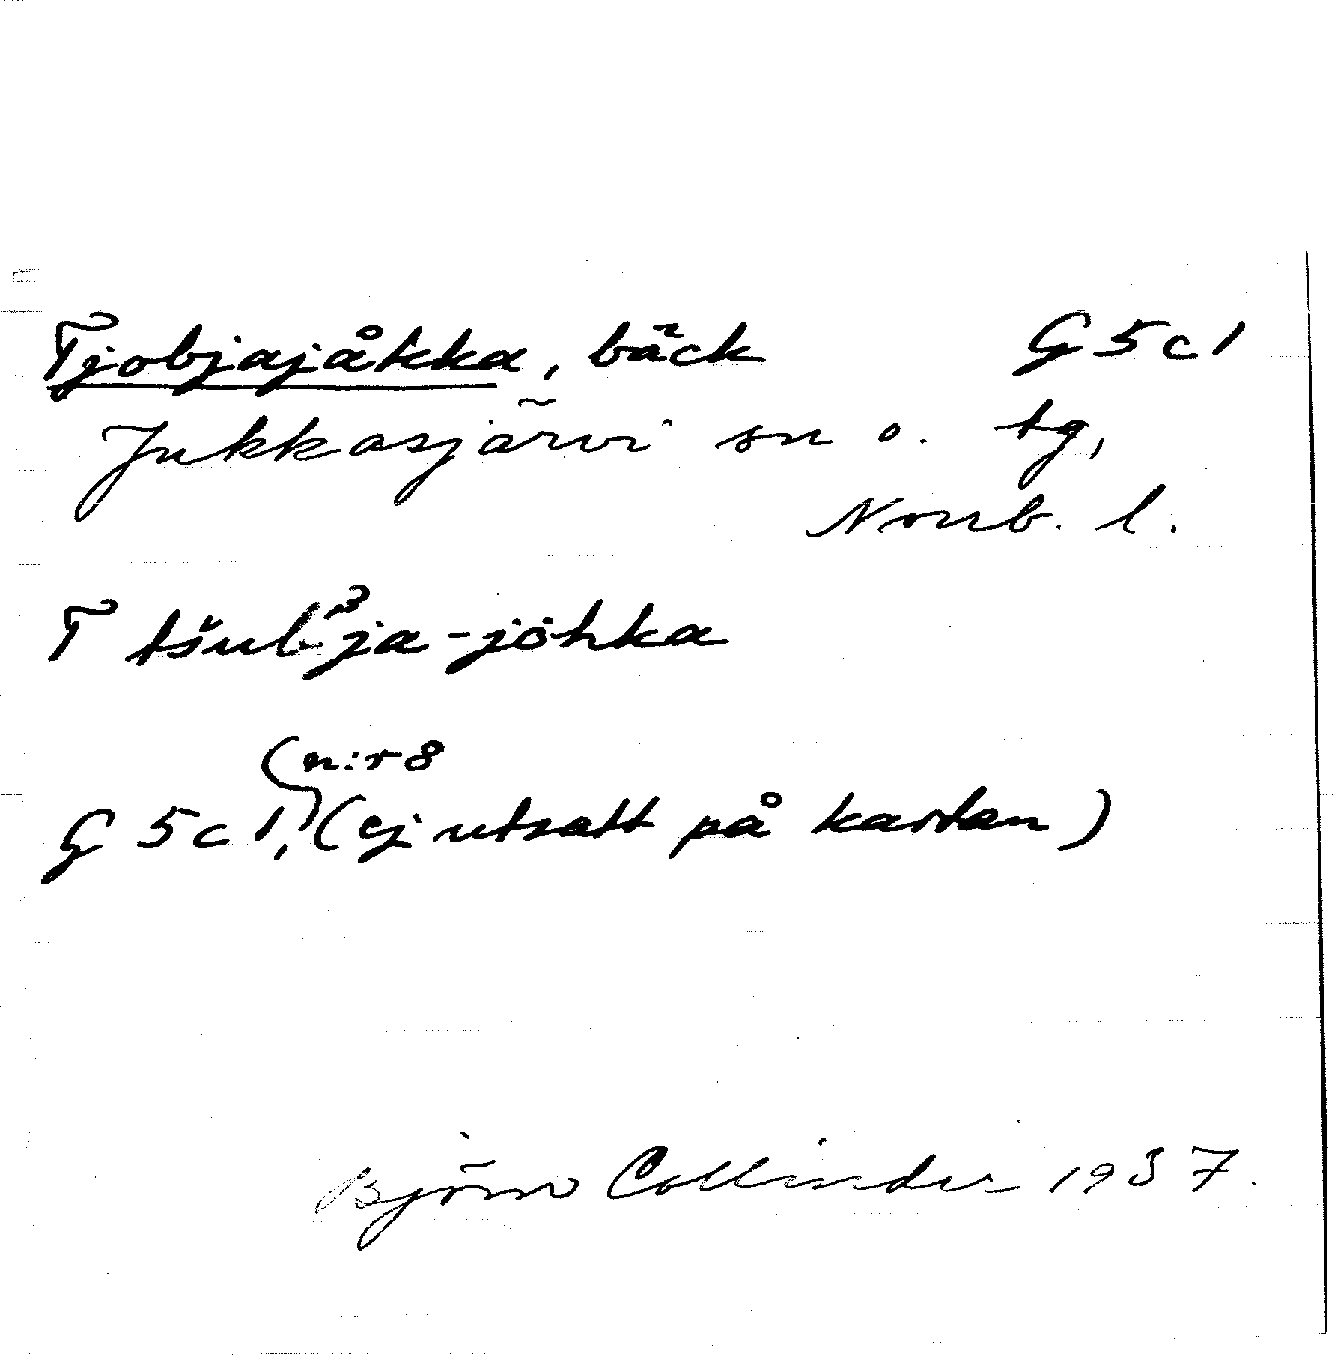 Tjobjajåkka, bäck G5c1
Jukkasjärvi sn o. tg,
Norrb. l.
T tšubᵊja-johka
(n:r 8
G 5 c 1, (ej utsatt på kartan)
Björn Collinder 1937.